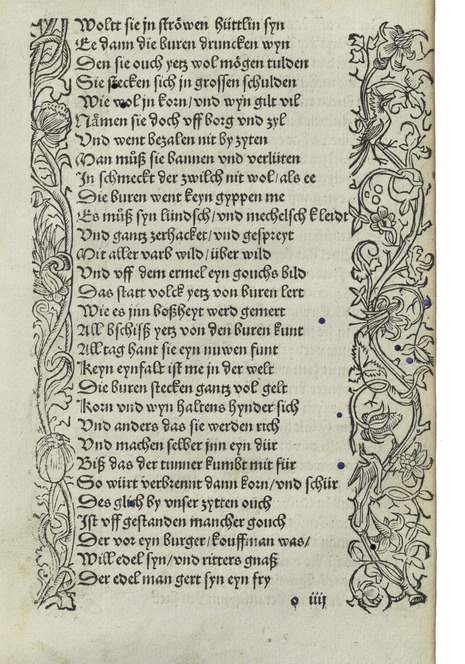 Woltt sie jn ströwen hüttlin syn
Ee dann die buren druncken wyn
Den sie ouch yetz wol mögen tulden
Sie stecken sich in grossen schulden
Wie wol jn korn/vnd wyn gilt vil
Nämen sie doch vff borg vnd zyl
Vnd went bezalen nit by zyten
Man müß sie bannen vnd verlüten
In schmeckt der zwilch nit wol/als ee
Die buren went keyn gyppen me
Es müß syn lündsch/vnd mechelsch kleidt
Vnd gantz zerhacket/vnd gespreyt
Mit aller varb wild/über wild
Vnd vff dem ermel eyn gouchs bild
Das statt volck yetz von buren lert
Wie es jnn boßheyt werd gemert
All bschisß yetz von den buren kunt
All tag hant sie eyn nuwen funt
Keyn eynfalt ist me in der welt
Die buren stecken gantz vol gelt
Korn vnd wyn haltens hynder sich
Vnd anders das sie werden rich
Vnd machen selber jnn eyn dür
Biß das der tunner kumbt mit für
So würt verbrennt dann korn/vnd schür
Des glich by vnser zytten ouch
Ist vff gestanden mancher gouch
Der vor eyn burger/kouffman was/
Will edel syn/vnd ritters gnaß
Der edel man gert syn eyn fry
o iiij